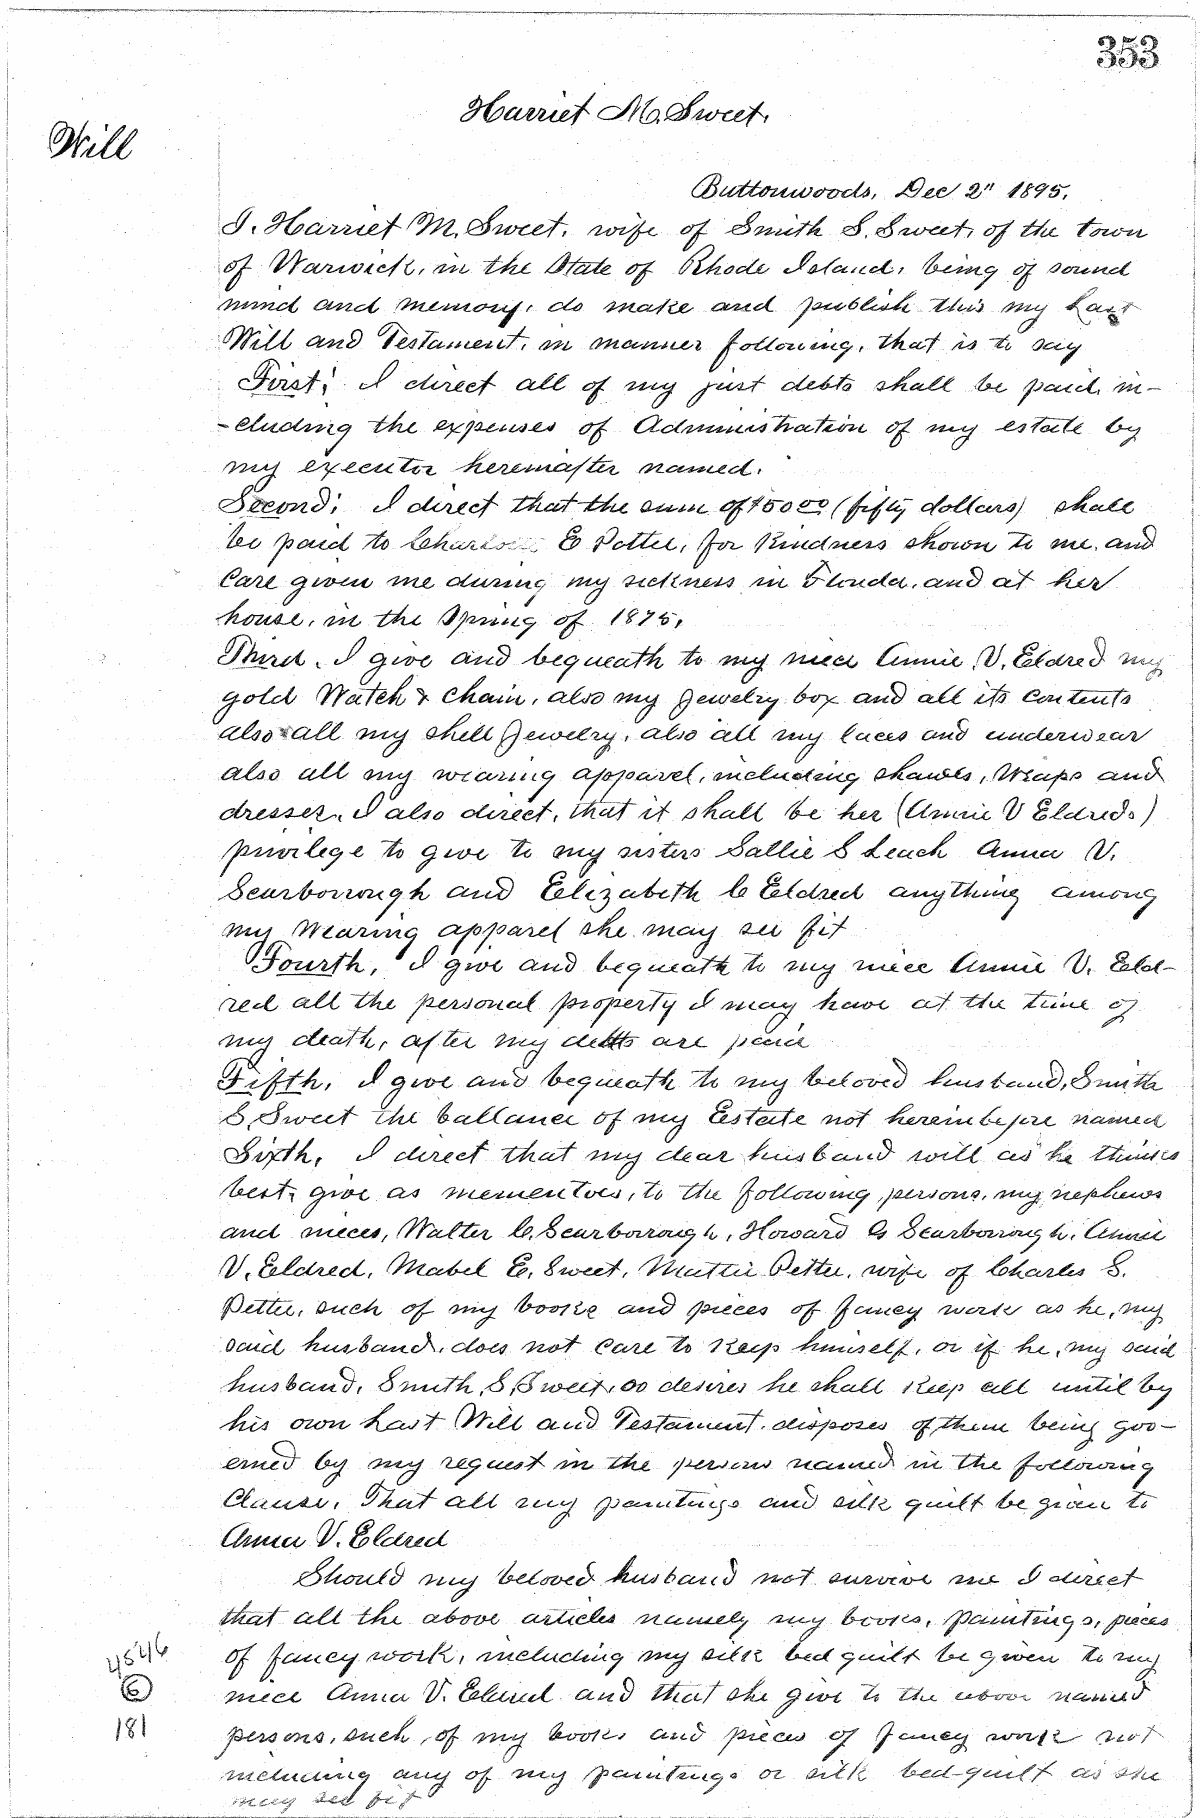 353
Harriet M. Sweet.
Will
Buttonwoods, Dec 2" 1895.
I, Harriet M. Sweet, wife of Smith S. Sweet, of the town
of Warwick, in the State of Rhode Island, being of sound
mind and memory, do make and publish this my Last
Will and Testament, in manner following, that is to say
First; I direct all of my just debts shall be paid, in-
-cluding the expenses of Administration of my estate by
my executor hereinafter named.
Second; I direct that the sum of $50 00 (fifty dollars) shall
be paid to E Potter, for Kindness shown to me, and
Care given me during my sickness in Florida, and at her
house, in the Spring of 1875,
Third. I give and bequeath to my niece Annie V. Eldred my
gold Watch & chain, also my Jewelry box and all its contents
also all my shell Jewelry, also all my laces and underwear
also all my wearing apparel, including shawls, Wraps and
dresses. I also direct, that it shall be her (Annie V Eldreds)
privilege to give to my sisters Sallie S Leach Anna V.
Scarborrough and Elizabeth C Eldred anything among
my Wearing apparel she may see fit
Fourth, I give and bequeath to my niece Annie V. Eld-
red all the personal property I may have at the time of
my death, after my debts are paid
Fifth, I give and bequeath to my beloved husband, Smith
S. Sweet the ballance of my Estate not hereinbefore named
Sixth, I direct that my dear husband will as he thinks
best, give as mementoes, to the following persons, my nephews
and nieces, Walter C. Scarborrough, Howard G Scarborrough, Annie
V. Eldred, Mabel E. Sweet, Mattie Pettee, wife of Charles S.
Pettee, such of my books and pieces of fancy work as he, my
said husband, does not care to Keep himself, or if he, my said
husband, Smith S. Sweet, so desires he shall Keep all until by
his own Last Will and Testament disposes of them being gov-
erned by my request in the persons named in the following
Clause, That all my paintings and silk quilt be given to
Anna V. Eldred
Should my beloved husband not survive me I direct
that all the above articles namely my books, paintings, pieces
of fancy work, including my silk bed quilt be given to my
niece Anna V. Eldred and that she give to the above named
persons, such, of my books and pieces of fancy work not
including any of my paintings or silk bed-quilt as she
may see fit
4546
6
181